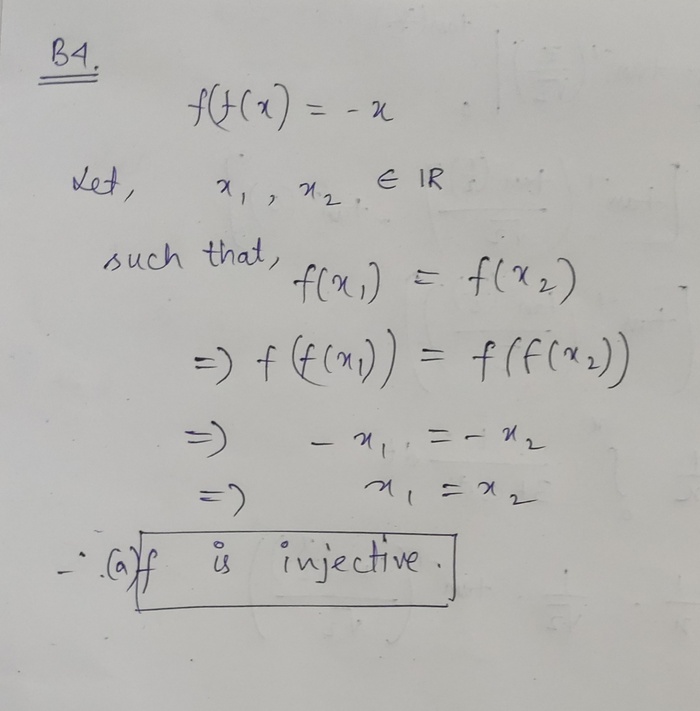 B4.
f(f(x) = -x
Let, x₁, x₂ ∈ IR
such that, f(x₁) = f(x₂)
=> f(f(x₁)) = f(f(x₂))
=> -x₁ = -x₂
=> x₁ = x₂
∴ (a) f is injective.